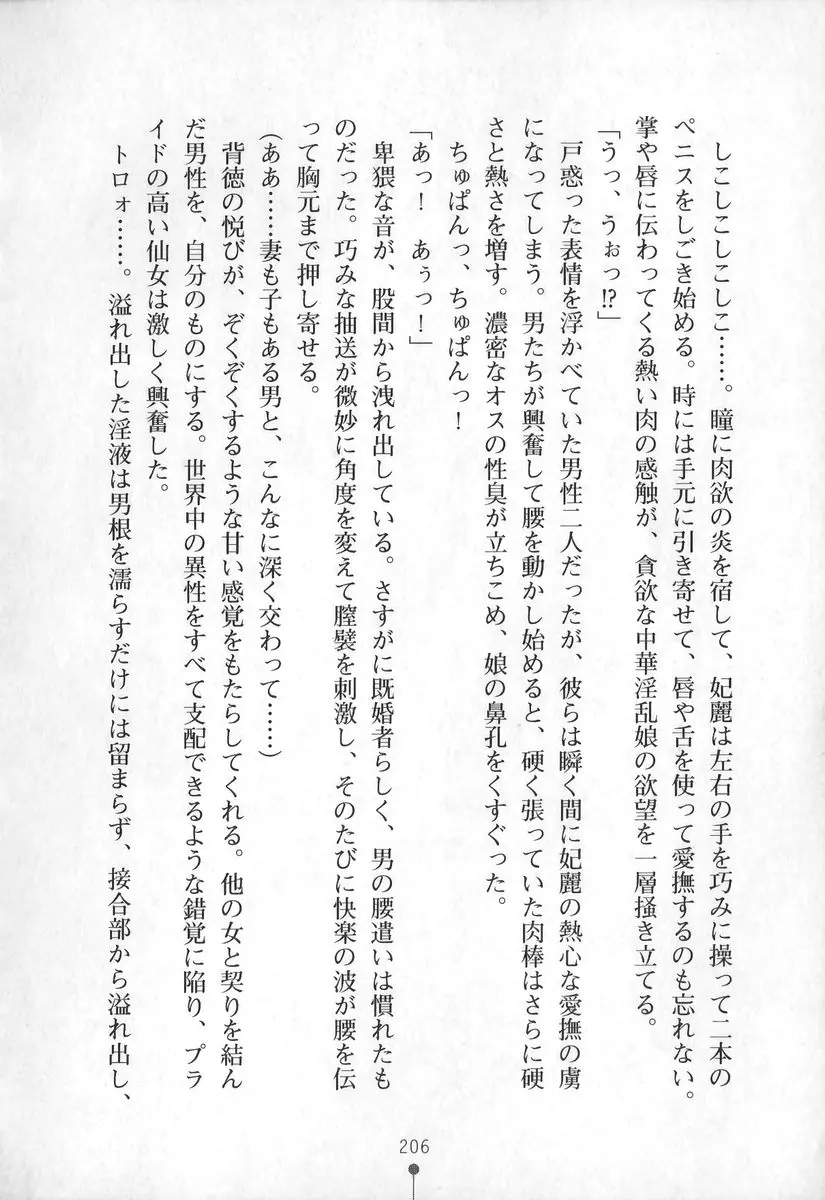 しこしこしこしこ……。瞳に肉欲の炎を宿して、妃麗は左右の手を巧みに操って二本の
ペニスをしごき始める。時には手元に引き寄せて、唇や舌を使って愛撫するのも忘れない。
掌や唇に伝わってくる熱い肉の感触が、貪欲な中華淫乱娘の欲望を一層掻き立てる。
「うっ、うぉっ!?」
戸惑った表情を浮かべていた男性二人だったが、彼らは瞬く間に妃麗の熱心な愛撫の虜
になってしまう。男たちが興奮して腰を動かし始めると、硬く張っていた肉棒はさらに硬
さと熱さを増す。濃密なオスの性臭が立ちこめ、娘の鼻孔をくすぐった。
ちゅぱんっ、ちゅぱんっ！
「あっ！　あぅっ！」
卑猥な音が、股間から洩れ出している。さすがに既婚者らしく、男の腰遣いは慣れたも
のだった。巧みな抽送が微妙に角度を変えて膣襞を刺激し、そのたびに快楽の波が腰を伝
って胸元まで押し寄せる。
（ああ……妻も子もある男と、こんなに深く交わって……）
背徳の悦びが、ぞくぞくするような甘い感覚をもたらしてくれる。他の女と契りを結ん
だ男性を、自分のものにする。世界中の異性をすべて支配できるような錯覚に陥り、プラ
イドの高い仙女は激しく興奮した。
トロォ……。溢れ出した淫液は男根を濡らすだけには留まらず、接合部から溢れ出し、
206